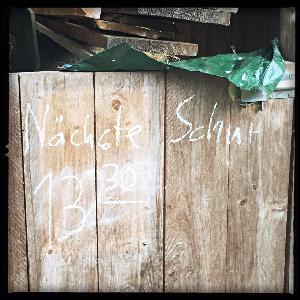 Nächste Schur
13 30